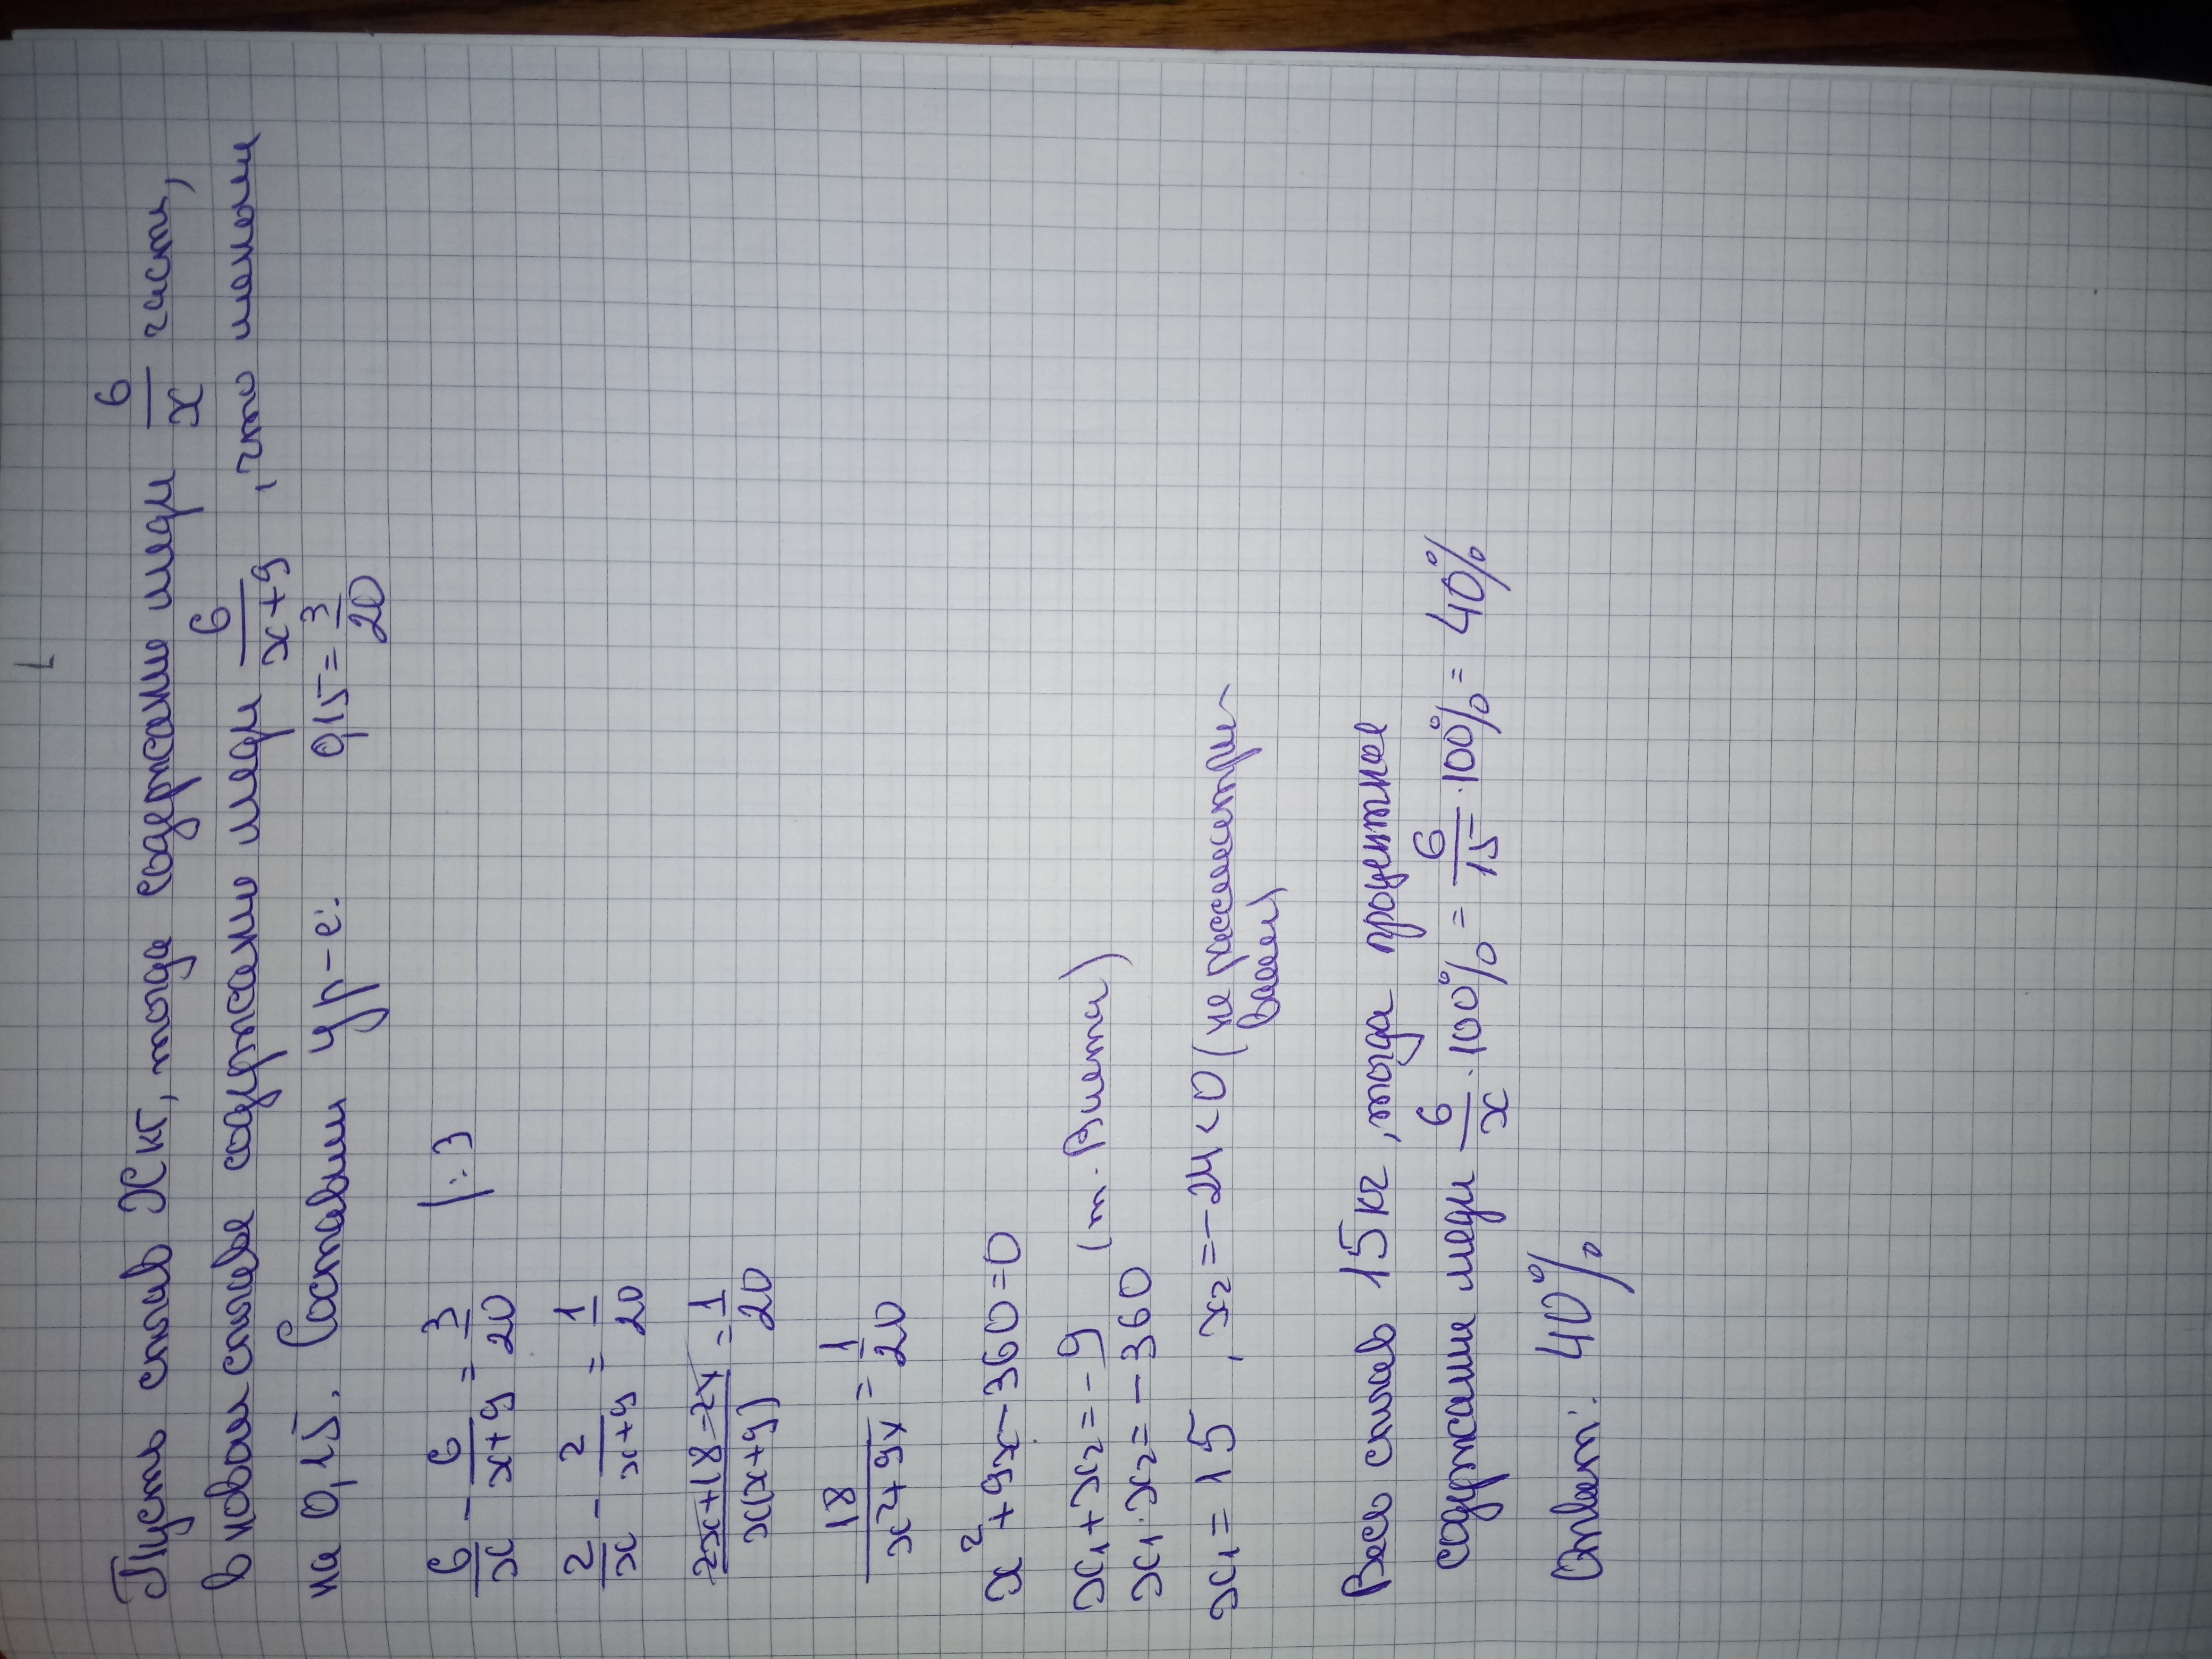 Пусть сплав x кг, тогда содержание меди 6/x части,
в новом сплаве содержание меди 6/(x+9), что меньше
на 0,15. Составим ур-е: 0,15 = 3/20
6/x - 6/(x+9) = 3/20 |:3
2/x - 2/(x+9) = 1/20
(2x+18-2x)/(x(x+9)) = 1/20
18/(x²+9x) = 1/20
x²+9x-360=0
x₁+x₂=-9 (т. Виета)
x₁·x₂=-360
x₁=15, x₂=-24<0 (не рассматри-
ваем)
Весь сплав 15кг, тогда процентное
содержание меди 6/x·100% = 6/15·100% = 40%
Ответ: 40%